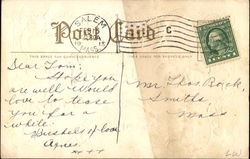 SALEM
MASS.
Post Card
C
THIS SPACE FOR CORRESPONDENCE
Dear Tom;
Hope you
are well. Would
love to have
you for a
while.
Bushels of love
Agnes.
Mr. Thos. Rock,
Smiths
Mass